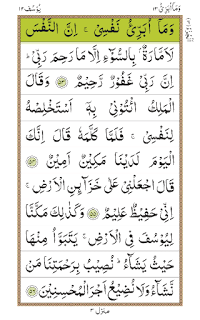 وما ابرئ ١٣ يوسف ١٢
وَمَآ اُبَرِّئُ نَفۡسِىۡ​ۚ اِنَّ النَّفۡسَ
لَاَمَّارَةٌۢ بِالسُّوۡٓءِ اِلَّا مَا رَحِمَ رَبِّىۡ ؕ
اِنَّ رَبِّىۡ غَفُوۡرٌ رَّحِيۡمٌ ﴿۵۳﴾ وَقَالَ
الۡمَلِكُ ائۡتُوۡنِىۡ بِهٖۤ اَسۡتَخۡلِصۡهُ
لِنَفۡسِىۡ​ۚ فَلَمَّا كَلَّمَهٗ قَالَ اِنَّكَ
الۡيَوۡمَ لَدَيۡنَا مَكِيۡنٌ اَمِيۡنٌ ﴿۵۴﴾
قَالَ اجۡعَلۡنِىۡ عَلٰى خَزَآٮِٕنِ الۡاَرۡضِ​ۚ
اِنِّىۡ حَفِيۡظٌ عَلِيۡمٌ ﴿۵۵﴾ وَكَذٰلِكَ مَكَّنَّا
لِيُوۡسُفَ فِى الۡاَرۡضِ​ۚ يَتَبَوَّاُ مِنۡهَا
حَيۡثُ يَشَآءُ​ ؕ نُصِيۡبُ بِرَحۡمَتِنَا مَنۡ
نَّشَآءُ​ وَلَا نُضِيۡعُ اَجۡرَ الۡمُحۡسِنِيۡنَ ﴿۵۶﴾
منزل ٣